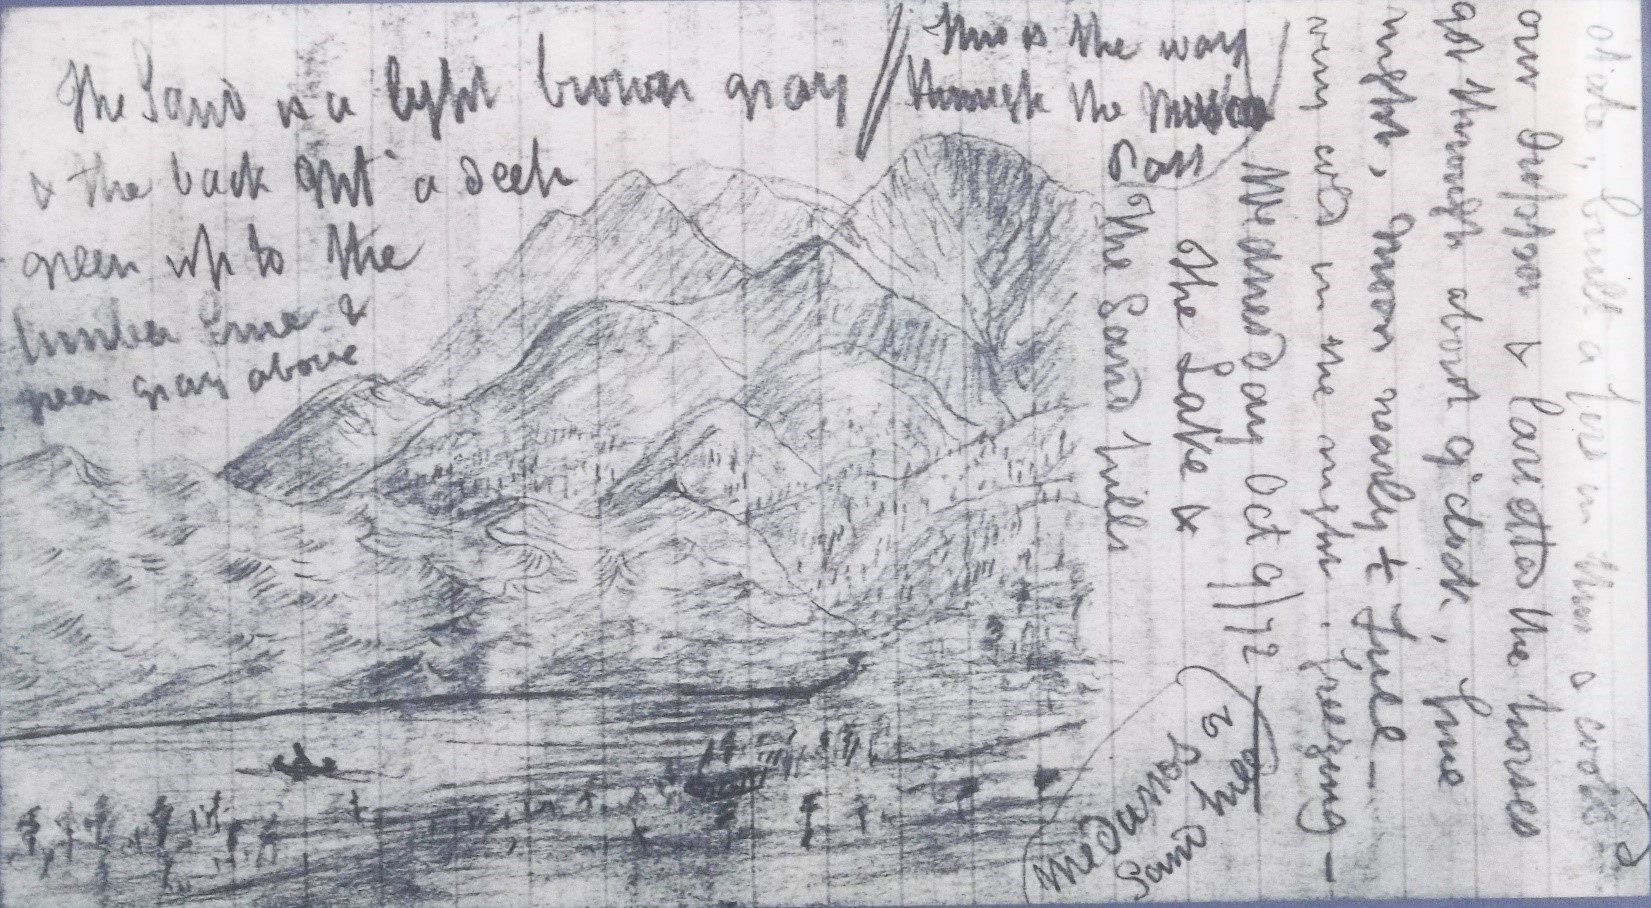 The Sand is a light brown gray
& the back gnt a deep
green up to the
timber line &
green gray above
This is the way
through the
Pass
The Sand hills
The Lake &
Wednesday Oct 9/72
very cold in the night. freezing —
night, moon nearly + full —
got through about 9 o'clock, fine
our & lariatted the horses
built a fire in this
Medanos
Sand hill